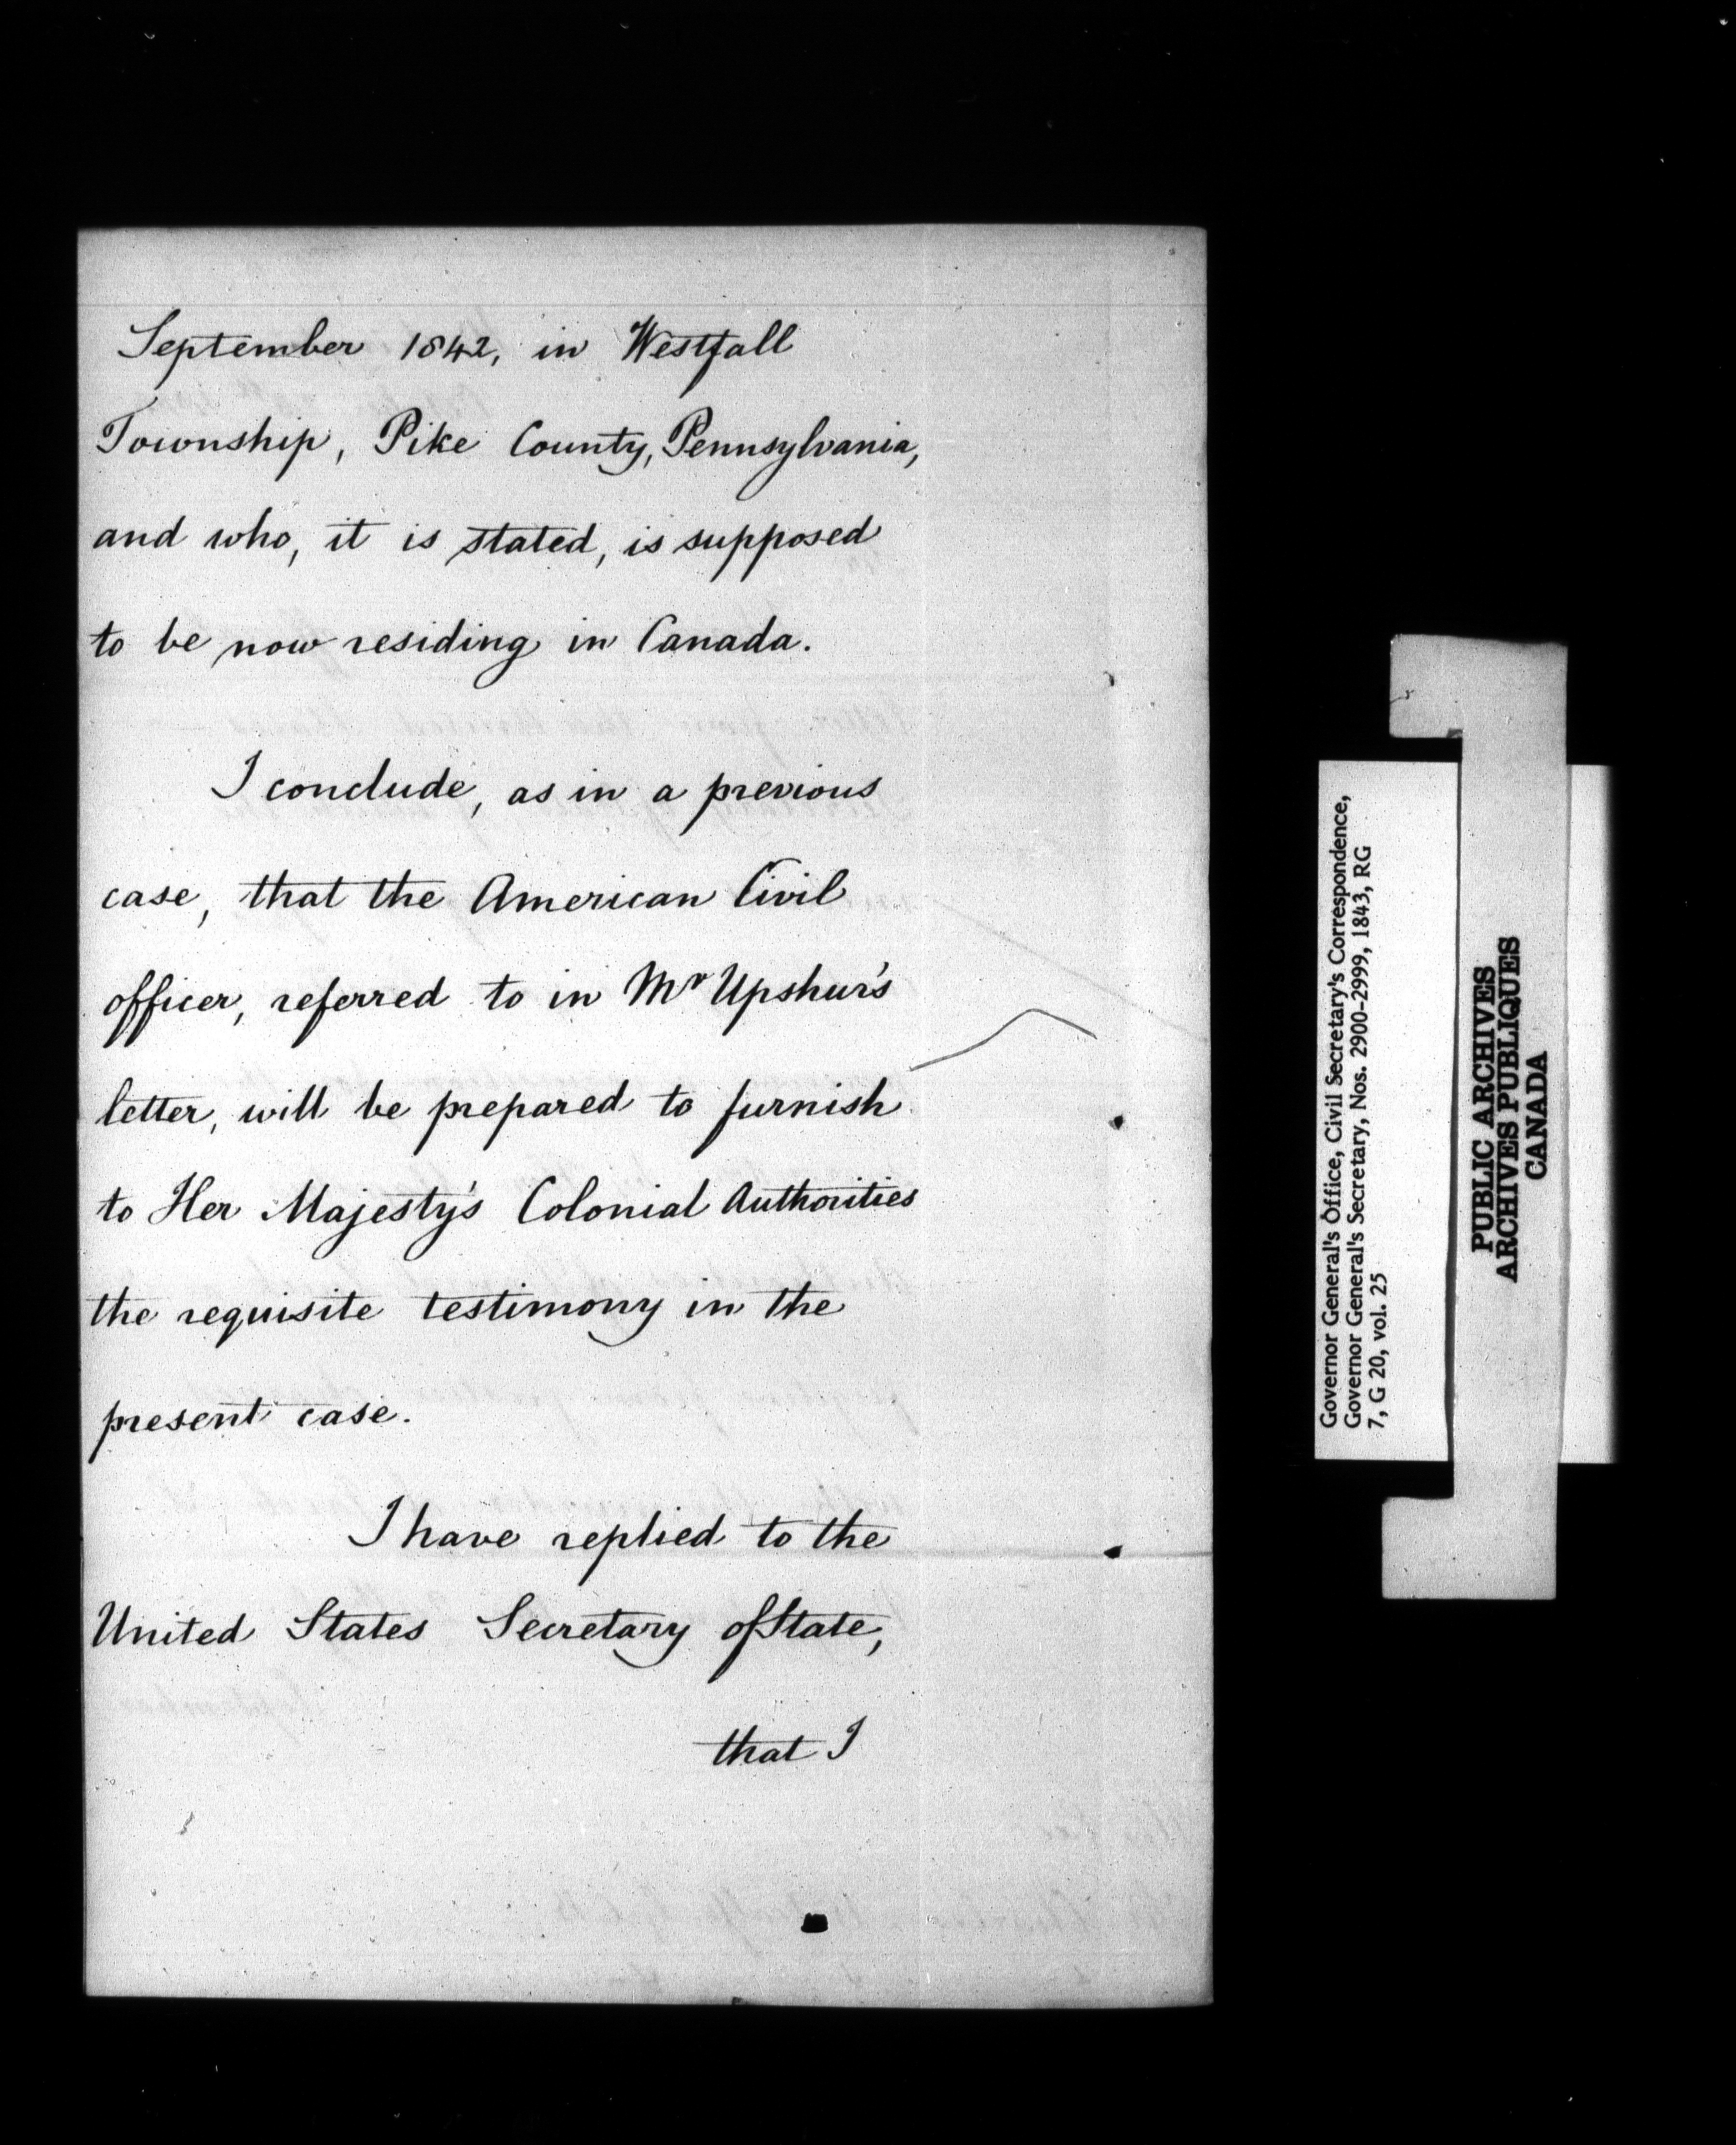 September 1842, in Westfall
Township, Pike County, Pennsylvania,
and who, it is stated, is supposed
to be now residing in Canada.
I conclude, as in a previous
case, that the American Civil
officer, referred to in Mr Upshur's
letter, will be prepared to furnish
to Her Majesty's Colonial Authorities
the requisite testimony in the
present case.
I have replied to the
United States Secretary of State,
that I
Governor General's Office, Civil Secretary's Correspondence,
Governor General's Secretary, Nos. 2900-2999, 1843, RG
7, G 20, vol. 25
PUBLIC ARCHIVES
ARCHIVES PUBLIQUES
CANADA